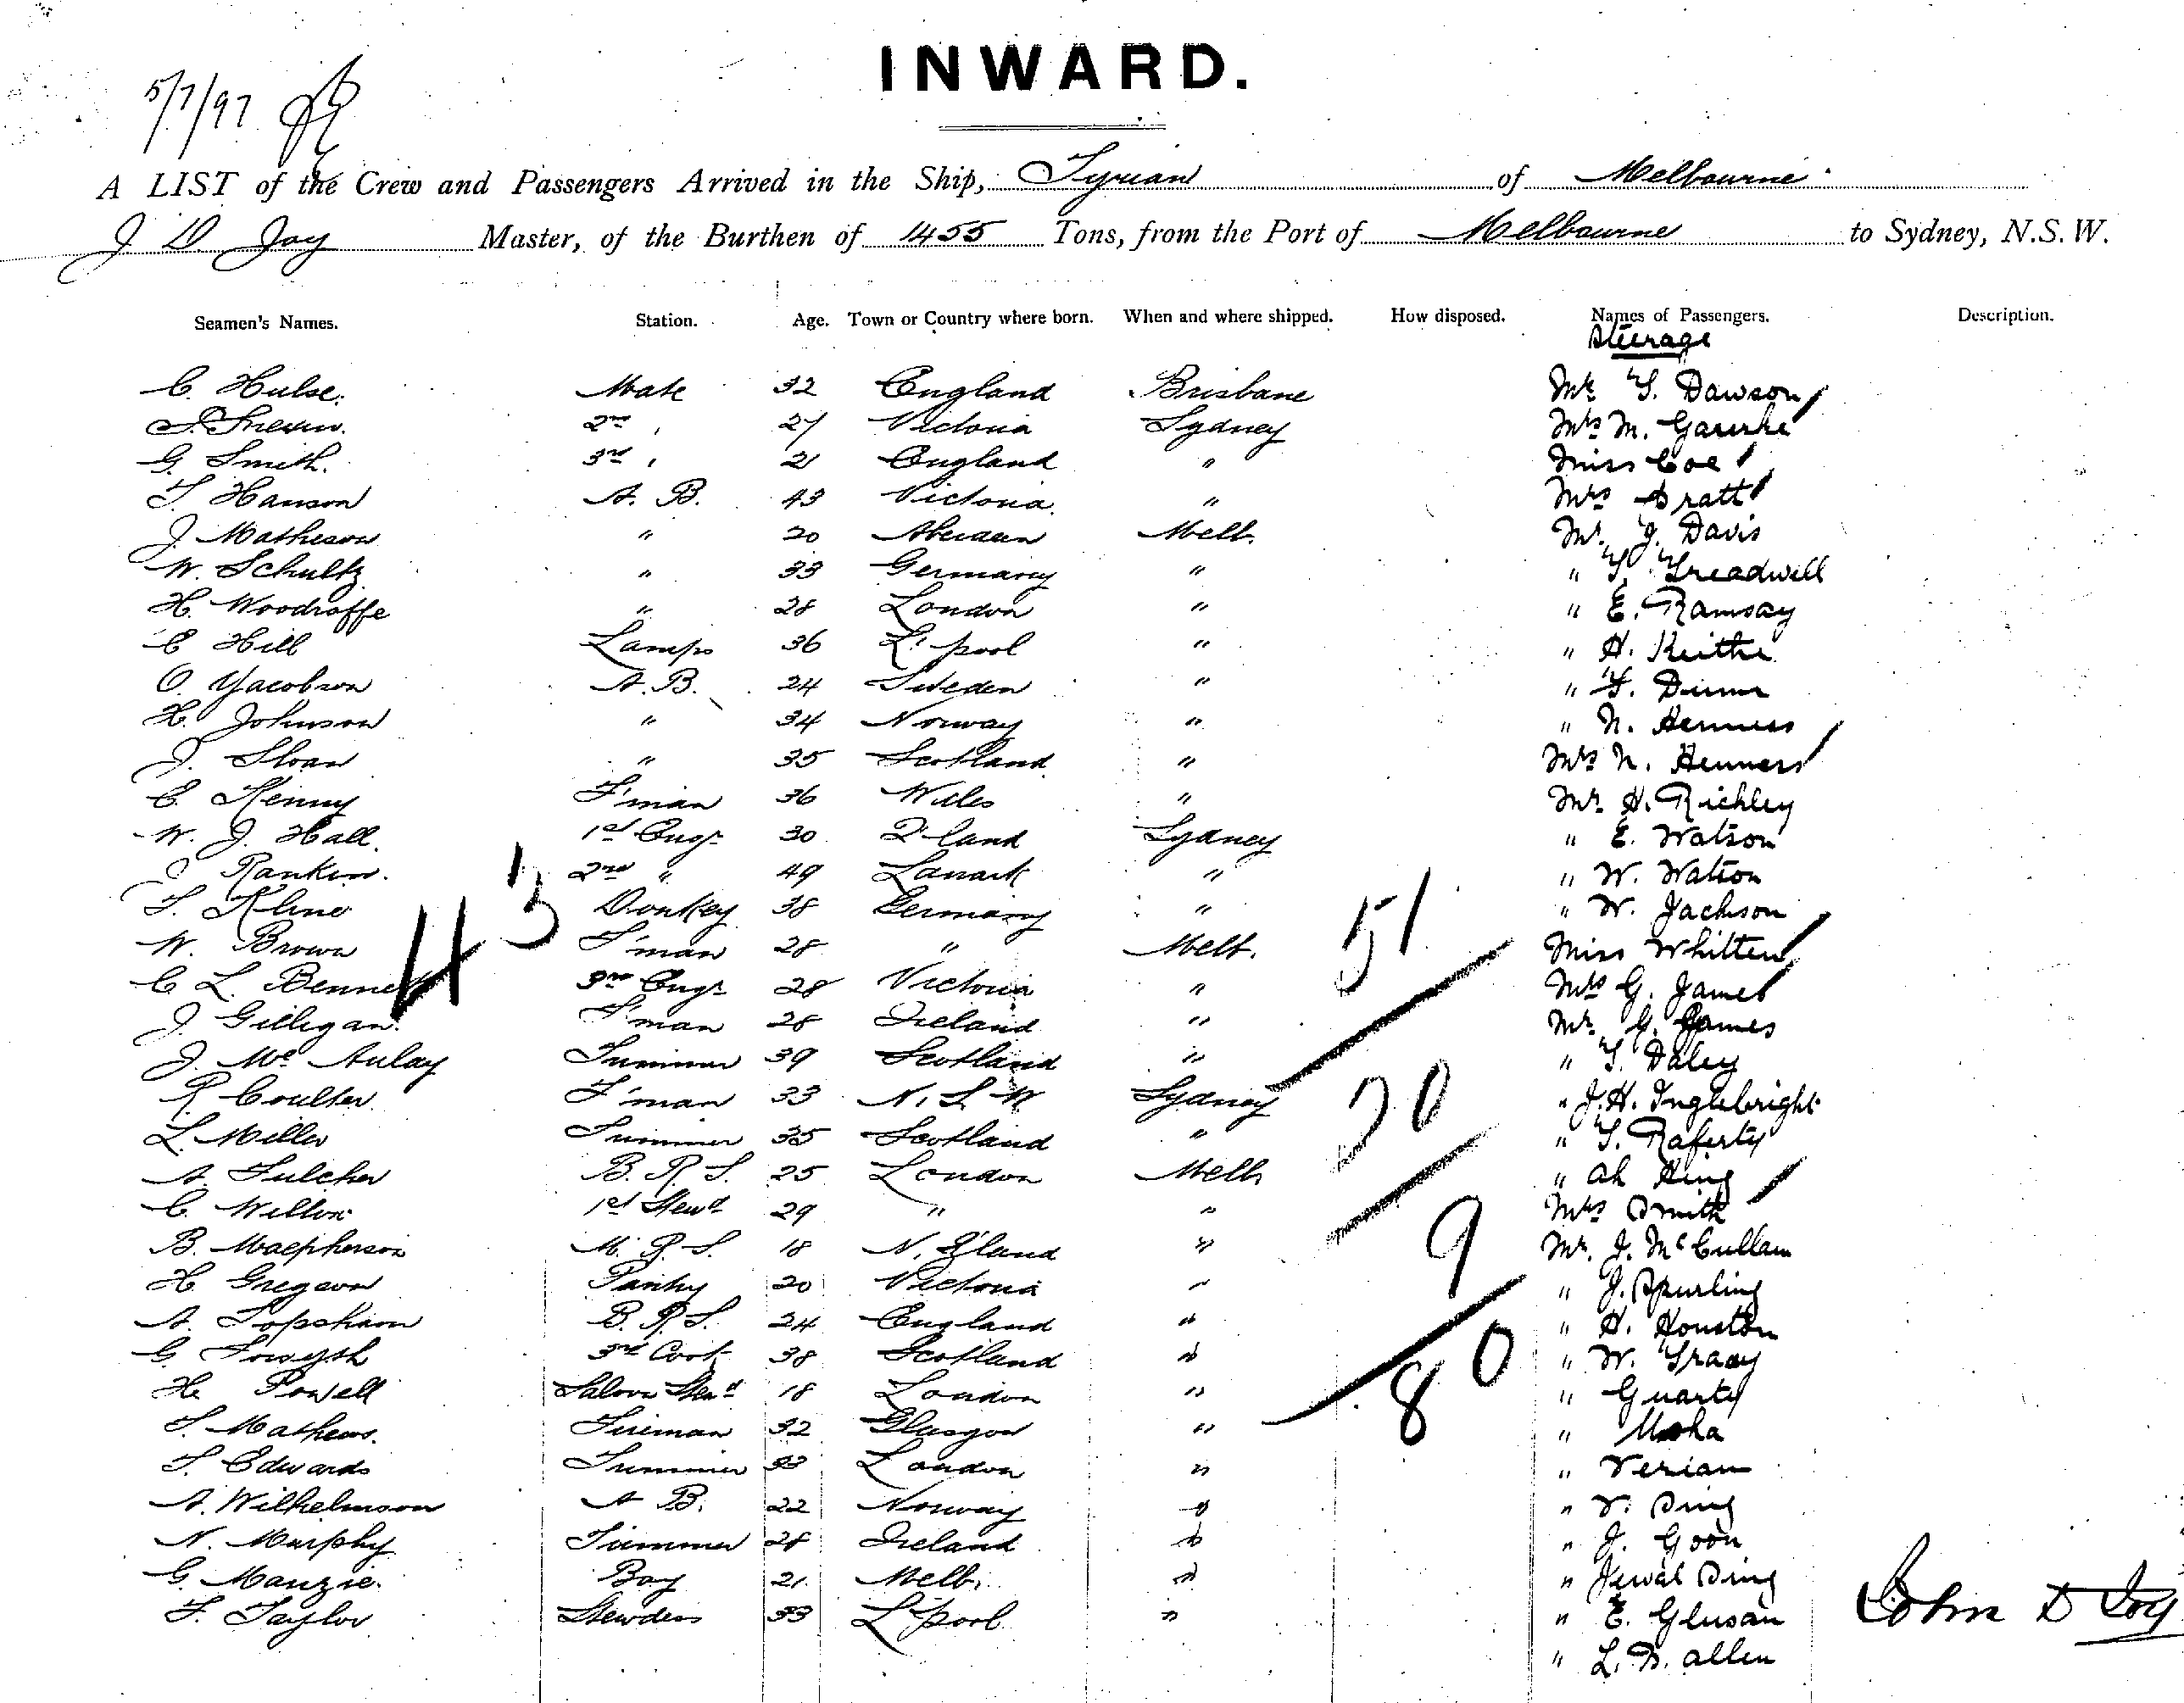 INWARD.
5/7/97
A LIST of the Crew and Passengers Arrived in the Ship, Tyrian of Melbourne
J D Joy Master, of the Burthen of 1455 Tons, from the Port of Melbourne to Sydney, N.S.W.
Seamen's Names. Station. Age. Town or Country where born. When and where shipped. How disposed. Names of Passengers. Description.
Steerage
C. Hulse. Mate 32 England Brisbane Mr T. Dawson
2nd " 27 Victoria Sydney Mrs M.
G. Smith. 3rd " 21 England " Miss Coe
T. Hanson A. B. 43 Victoria " Mrs Pratt
J. Matheson " 20 Aberdeen Melb. Mr. J. Davis
W. Schultz " 33 Germany " " T. Treadwell
H. Woodroffe " 28 London " " E. Ramsay
C Hill Lamps 36 L'pool " " H. Keithe
O. Yacobson A.B. 24 Sweden " " T. Dunne
H. Johnson " 34 Norway " " N. Henness
J. Sloan " 35 Scotland " Mrs N. Henness
C. Kenny F'man 36 Wales " Mr H. Richley
W. J. Hall. 1st Engr 30 Q'land Sydney " E. Watson
Rankin. 2nd " 49 Lanark " " W. Watson
43 51
T. Kline Donkey 38 Germany " " W. Jackson
W. Brown F'man 28 " Melb. Miss Whitten
C L. Bennett 3rd Engr 28 Victoria " Mrs G. James
J. Gilligan. F'man 28 Ireland " Mr. G. James
J. Mc Aulay Trimmer 39 Scotland " " T. Daley
R Coulter F'man 33 N. S. W Sydney 20 " J. H. Inglebright
L. Miller Trimmer 35 Scotland " " T. Raferty
A. Fulcher B. R. S. 25 London Melb " Ah Hing
C. Wilton 1st Stewd 29 " " Mrs Smith
B. Macpherson M. R. S. 18 N. Z'land " 9 Mr. J. McCullam
H. Gregson Pantry 20 Victoria " " J. Spurling
A. Topsham B. R. S. 24 England " " H. Houston
G. Forsyth 3rd Cook 38 Scotland " 80 " W. Grady
H. Powell Saloon Stewd 18 London " "
T. Mathews. Fireman 32 Glasgow " "
T. Edwards Trimmer 33 London " " Verian
A. Wilhelmson A B. 22 Norway " "
N. Murphy Trimmer 28 Ireland " " J. Goon
G. Manzie. Boy 21 Melb. " "
F. Taylor Stewdess 33 L'pool " " E. Glusan John D Joy
" L. D. Allen